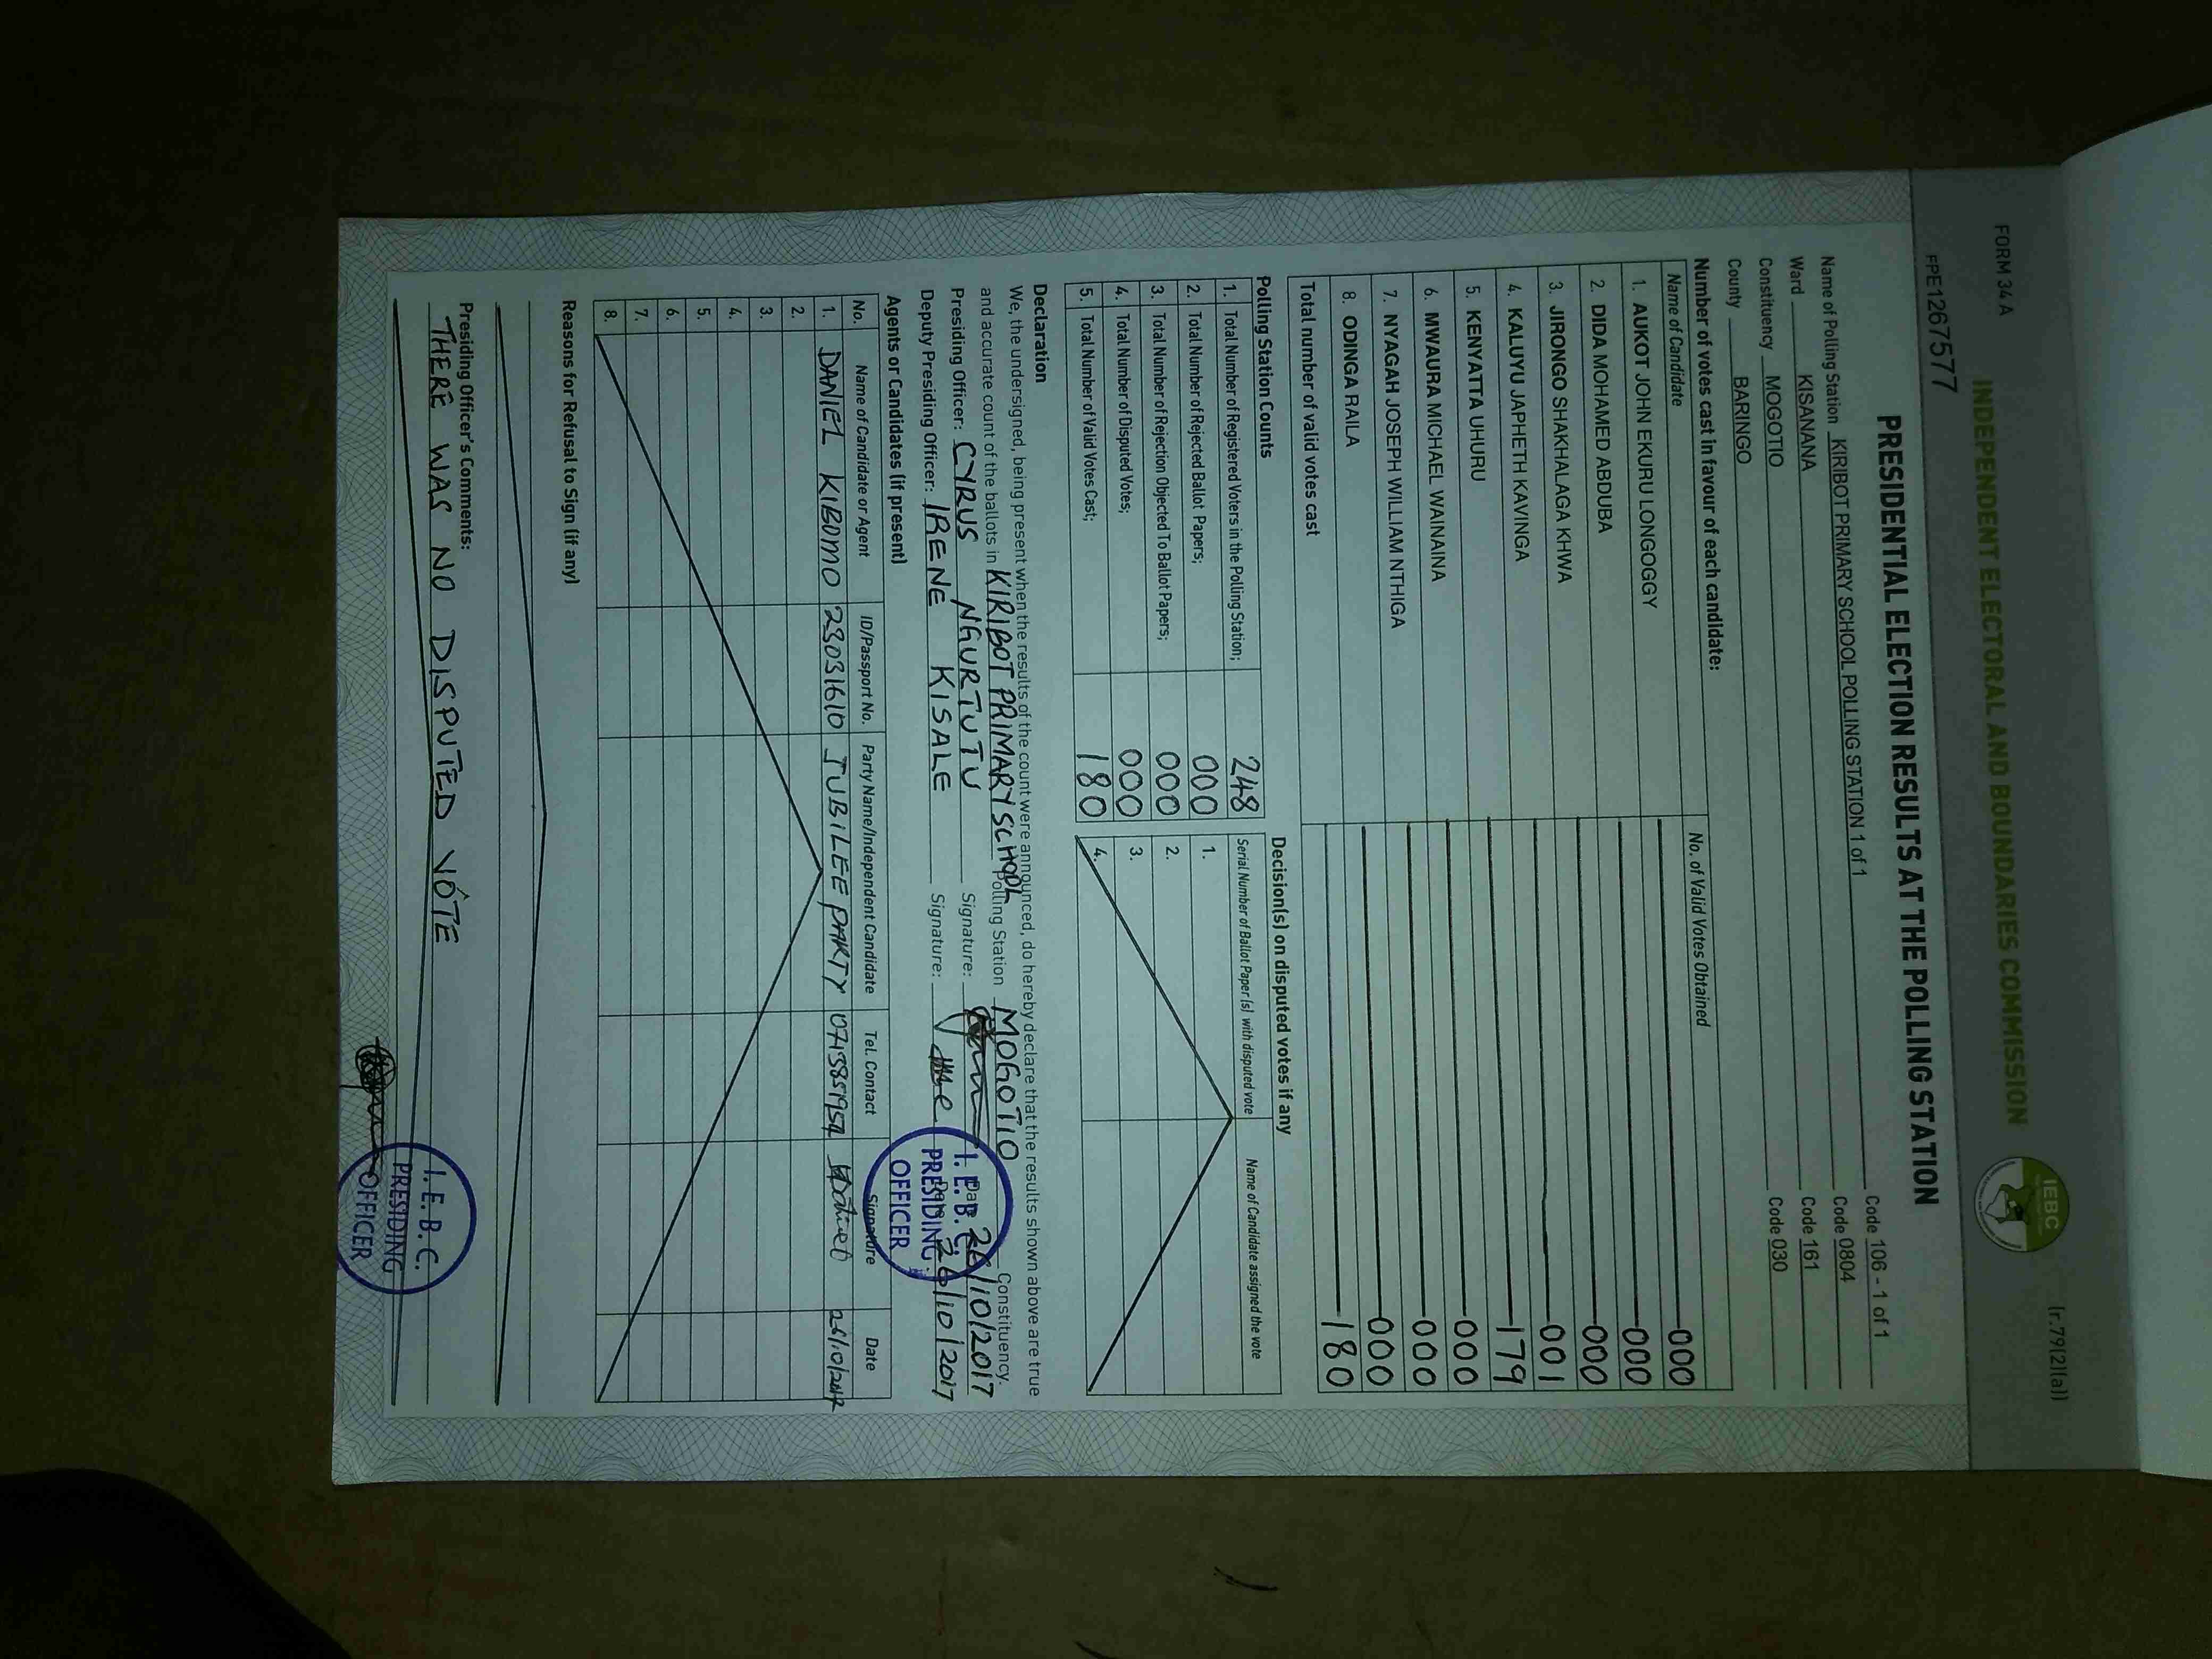 FORM 34A
(r.79(2)(a))
INDEPENDENT ELECTORAL AND BOUNDARIES COMMISSION
IEBC
FPE1267577
PRESIDENTIAL ELECTION RESULTS AT THE POLLING STATION
Name of Polling Station KIRIBOT PRIMARY SCHOOL POLLING STATION 1 of 1 Code 106 - 1 of 1
Ward KISANANA Code 0804
Constituency MOGOTIO Code 161
County BARINGO Code 030
Number of votes cast in favour of each candidate:
Name of Candidate No. of Valid Votes Obtained
1. AUKOT JOHN EKURU LONGOGGY 000
2. DIDA MOHAMED ABDUBA 000
3. JIRONGO SHAKHALAGA KHWA 000
4. KALUYU JAPHETH KAVINGA 001
5. KENYATTA UHURU 179
6. MWAURA MICHAEL WAINAINA 000
7. NYAGAH JOSEPH WILLIAM NTHIGA 000
8. ODINGA RAILA 000
Total number of valid votes cast 180
Polling Station Counts
1. Total Number of Registered Voters in the Polling Station; 248
2. Total Number of Rejected Ballot Papers; 000
3. Total Number of Rejection Objected To Ballot Papers; 000
4. Total Number of Disputed Votes; 000
5. Total Number of Valid Votes Cast; 180
Decision(s) on disputed votes if any
Serial Number of Ballot Paper (s) with disputed vote Name of Candidate assigned the vote
1.
2.
3.
4.
Declaration
We, the undersigned, being present when the results of the count were announced, do hereby declare that the results shown above are true
and accurate count of the ballots in KIRIBOT PRIMARY SCHOOL Polling Station MOGOTIO Constituency.
Presiding Officer: CYRUS NGURTUTU Signature: Date 26/10/2017
Deputy Presiding Officer: IRENE KISALE Signature: Date 26/10/2017
I. E. B. C.
PRESIDING
OFFICER
Agents or Candidates (if present)
No. Name of Candidate or Agent ID/Passport No. Party Name/Independent Candidate Tel. Contact Signature Date
1. DANIEL KIBOMO 23031610 JUBILEE PARTY 26/10/2017
2.
3.
4.
5.
6.
7.
8.
Reasons for Refusal to Sign (if any)
Presiding Officer's Comments:
THERE WAS NO DISPUTED VOTE
I. E. B. C.
PRESIDING
OFFICER